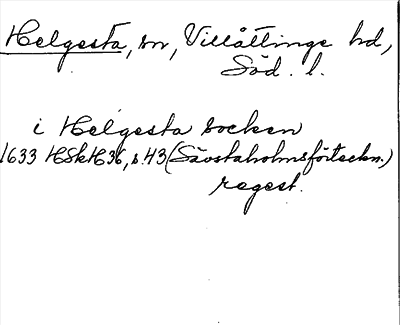 Helgesta, sn, Villåttinge hd,
Söd. l.
i Helgesta socken
1633 HSkH36, s.43 (Sävstaholmsförteckn.)
regest.